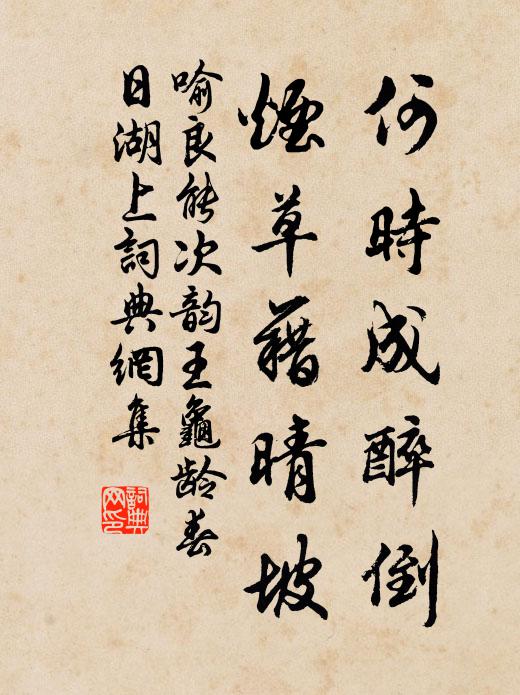 何時成醉倒
煙草藉晴坡
喻良能次韵王龜龄春
日湖上詞典網集
詞典
网印